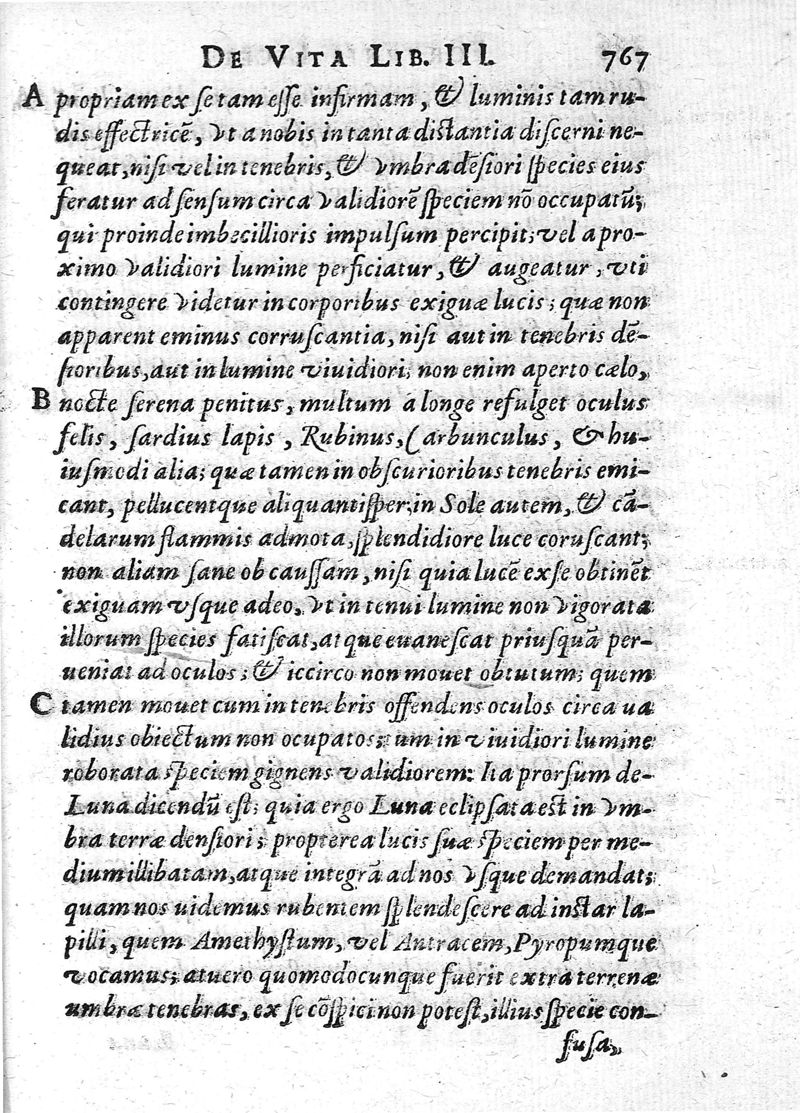 DE VITA LIB. III. 767
A propriam ex se tam esse infirmam, & luminis tam ru-
dis effectricē, vt a nobis in tanta distantia discerni ne-
queat, nisi vel in tenebris, & vmbra dēsiori species eius
feratur ad sensum circa validiorē speciem nō occupatū;
qui proinde imbecillioris impulsum percipit; vel a pro-
ximo validiori lumine perficiatur, & augeatur, vti
contingere videtur in corporibus exiguæ lucis; quæ non
apparent eminus corruscantia, nisi aut in tenebris dē-
sioribus, aut in lumine viuidiori; non enim aperto cælo,
B nocte serena penitus, multum a longe refulget oculus
felis, sardius lapis, Rubinus, Carbunculus, & hu-
iusmodi alia; quæ tamen in obscurioribus tenebris emi-
cant, pellucentque aliquantisper; in Sole autem, & cā-
delarum flammis admota, splendidiore luce coruscant;
non aliam sane ob caussam, nisi quia lucē ex se obtinēt
exiguam vsque adeo, vt in tenui lumine non vigorata
illorum species fatiscat, atque euanescat priusquā per-
ueniat ad oculos; & iccirco non mouet obtutum; quem
C tamen mouet cum in tenebris offendens oculos circa ua
lidius obiectum non ocupatos; tum in viuidiori lumine
roborata speciem gignens validiorem: Ita prorsum de
Luna dicendū est; quia ergo Luna eclipsata est in vm-
bra terræ densiori; propterea lucis suæ speciem per me-
dium illibatam, atque integrā ad nos vsque demandat;
quam nos uidemus rubentem splendescere ad instar la-
pilli, quem Amethystum, vel Antracem, Pyropumque
vocamus; at uero quomodocunque fuerit extra terrenæ
umbræ tenebras, ex se cōspici non potest, illius specie con-
fusa,